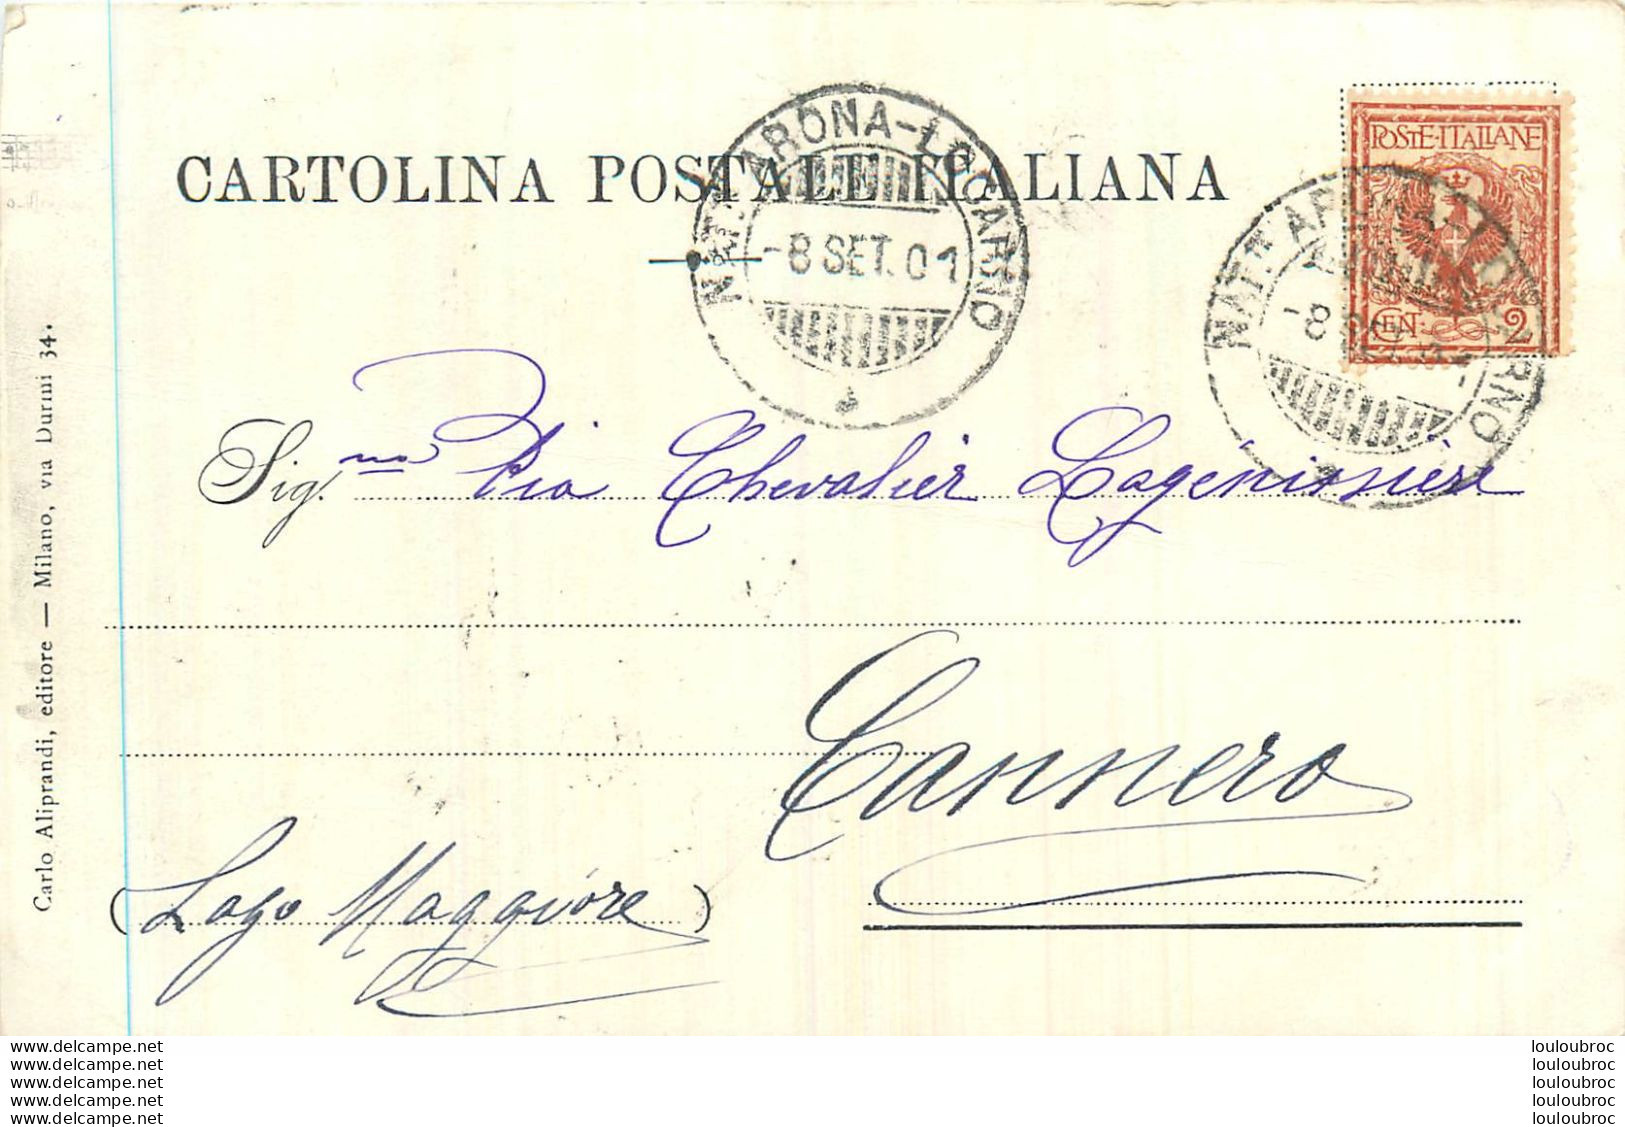 CARTOLINA POSTALE ITALIANA
NAT. ARONA-LOCARNO
-8 SET. 01
POSTE·ITALIANE
CENT. 2
NAT. ARONA-LOCARNO
-8 SET. 01
Sig.na Pia Chevalier
Cannero
(Lago Maggiore)
Carlo Aliprandi, editore — Milano, via Durini 34.
www.delcampe.net
www.delcampe.net
www.delcampe.net
www.delcampe.net
www.delcampe.net
louloubroc
louloubroc
louloubroc
louloubroc
louloubroc